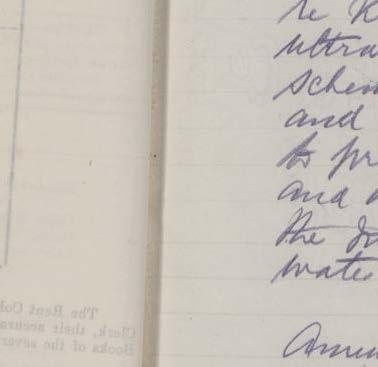 re K
ultra
schem
and
to pr
and
the
wate
Amen
The Rent Col
Clerk, their accura
Books of the sever